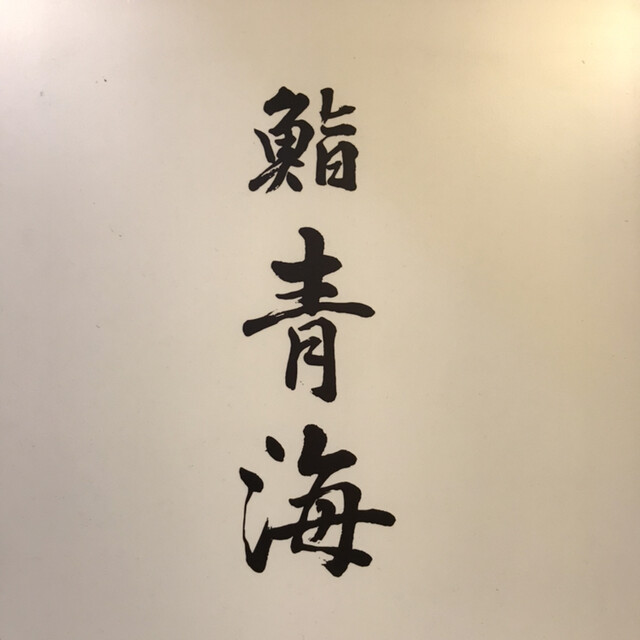 鮨青海